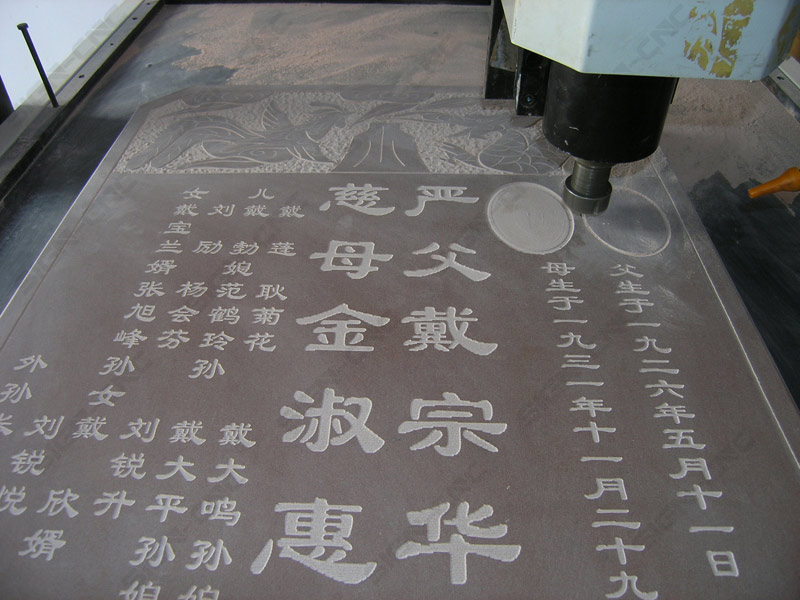 父生于一九二六年五月十一日
母生于一九三一年十一月二十九
严父戴宗华
慈母金淑惠
戴蓬耿菊花
儿戴勃媳范鹤玲
刘励杨会芬
女戴宝兰婿张旭峰
孙
戴大鸣孙媳
戴大平孙媳
刘锐升
孙女
戴欣婿
外孙
刘锐悦